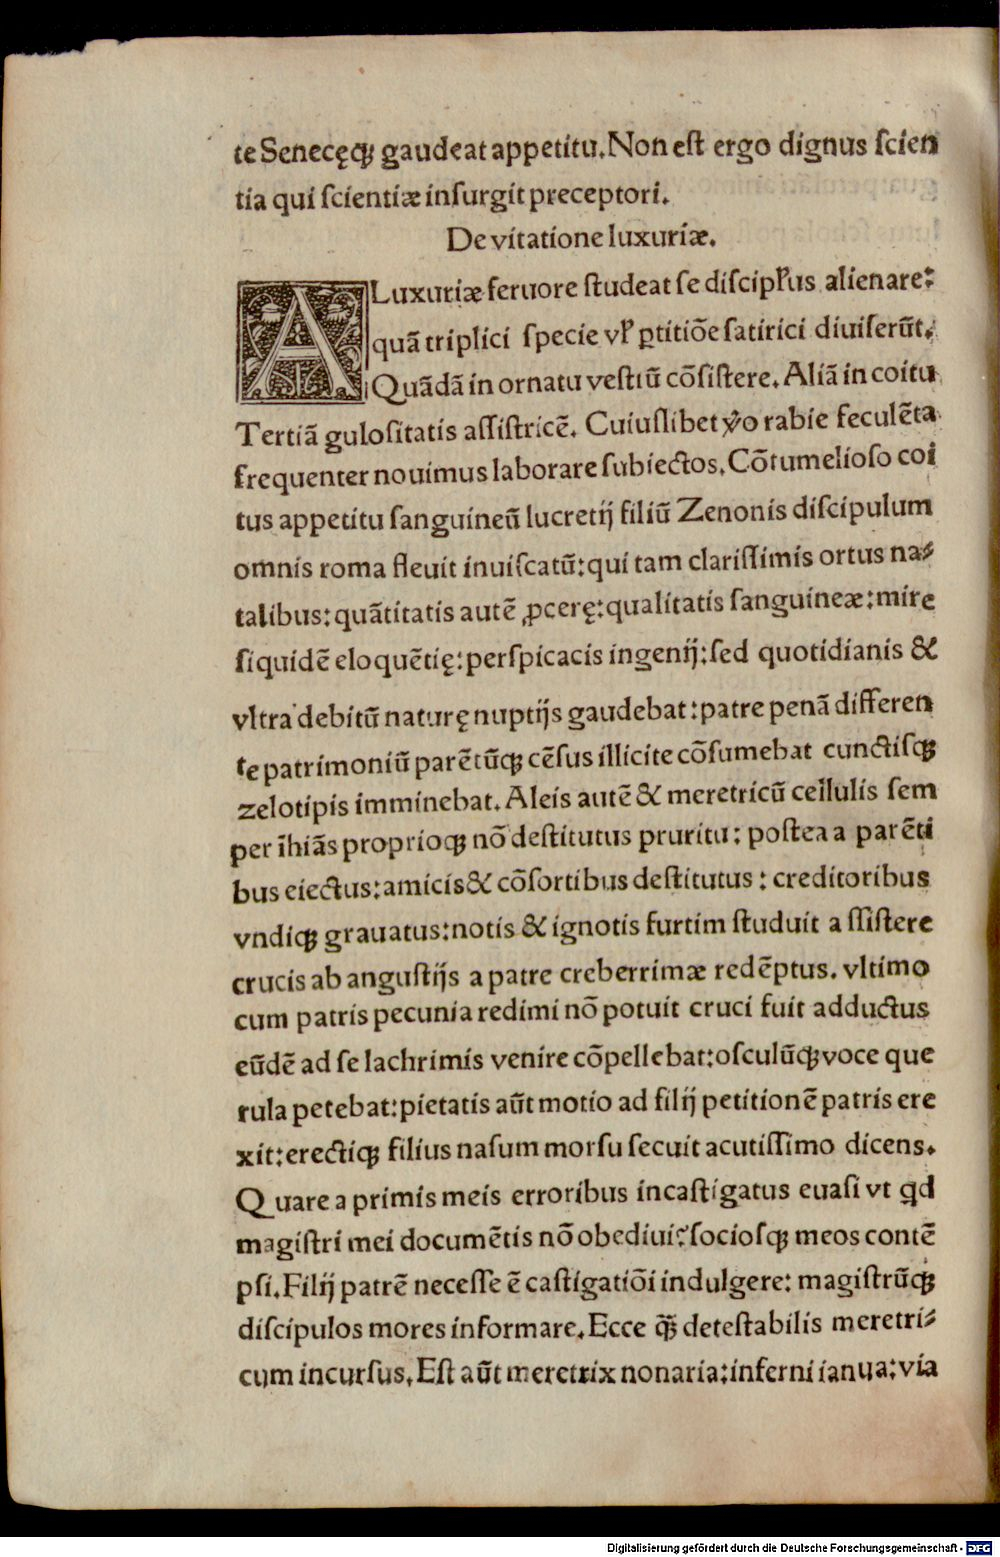 te Senecęqꝫ gaudeat appetitu. Non est ergo dignus scien
tia qui scientiæ insurgit preceptori.
De vitatione luxuriæ.
A Luxuriæ feruore studeat se discipl'us alienare:
quā triplici specie vl' ꝑtitiōe satirici diuiserūt.
Quādā in ornatu vestiū cōsistere. Aliā in coitu
Tertiā gulositatis assistricē. Cuiuslibet v̊o rabie feculēta
frequenter nouimus laborare subiectos. Cōtumelioso coi
tus appetitu sanguineū lucretij filiū Zenonis discipulum
omnis roma fleuit inuiscatū: qui tam clarissimis ortus na⸗
talibus: quātitatis autē ꝓcerę: qualitatis sanguineæ: mire
siquidē eloquētię: perspicacis ingenij: sed quotidianis &
vltra debitū naturę nuptijs gaudebat: patre penā differen
te patrimoniū parētūqꝫ cēsus illicite cōsumebat cunctisqꝫ
zelotipis imminebat. Aleis autē & meretricū cellulis sem
per īhiās proprioqꝫ nō destitutus pruritu: postea a parēti
bus eiectus: amicis & cōsortibus destitutus: creditoribus
vndiqꝫ grauatus: notis & ignotis furtim studuit assistere
crucis ab angustijs a patre creberrimæ redēptus. vltimo
cum patris pecunia redimi nō potuit cruci fuit adductus
eūdē ad se lachrimis venire cōpellebat: osculūqꝫ voce que
rula petebat: pietatis aūt motio ad filij petitionē patris ere
xit: erectiqꝫ filius nasum morsu secuit acutissimo dicens.
Quare a primis meis erroribus incastigatus euasi vt qd
magistri mei documētis nō obediui? sociosqꝫ meos contē
psi. Filij patrē necesse ē castigatiōi indulgere: magistrūqꝫ
discipulos mores informare. Ecce qꝫ̄ detestabilis meretri⸗
cum incursus. Est aūt meretrix nonaria: inferni ianua: via
Digitalisierung gefördert durch die Deutsche Forschungsgemeinschaft - DFG